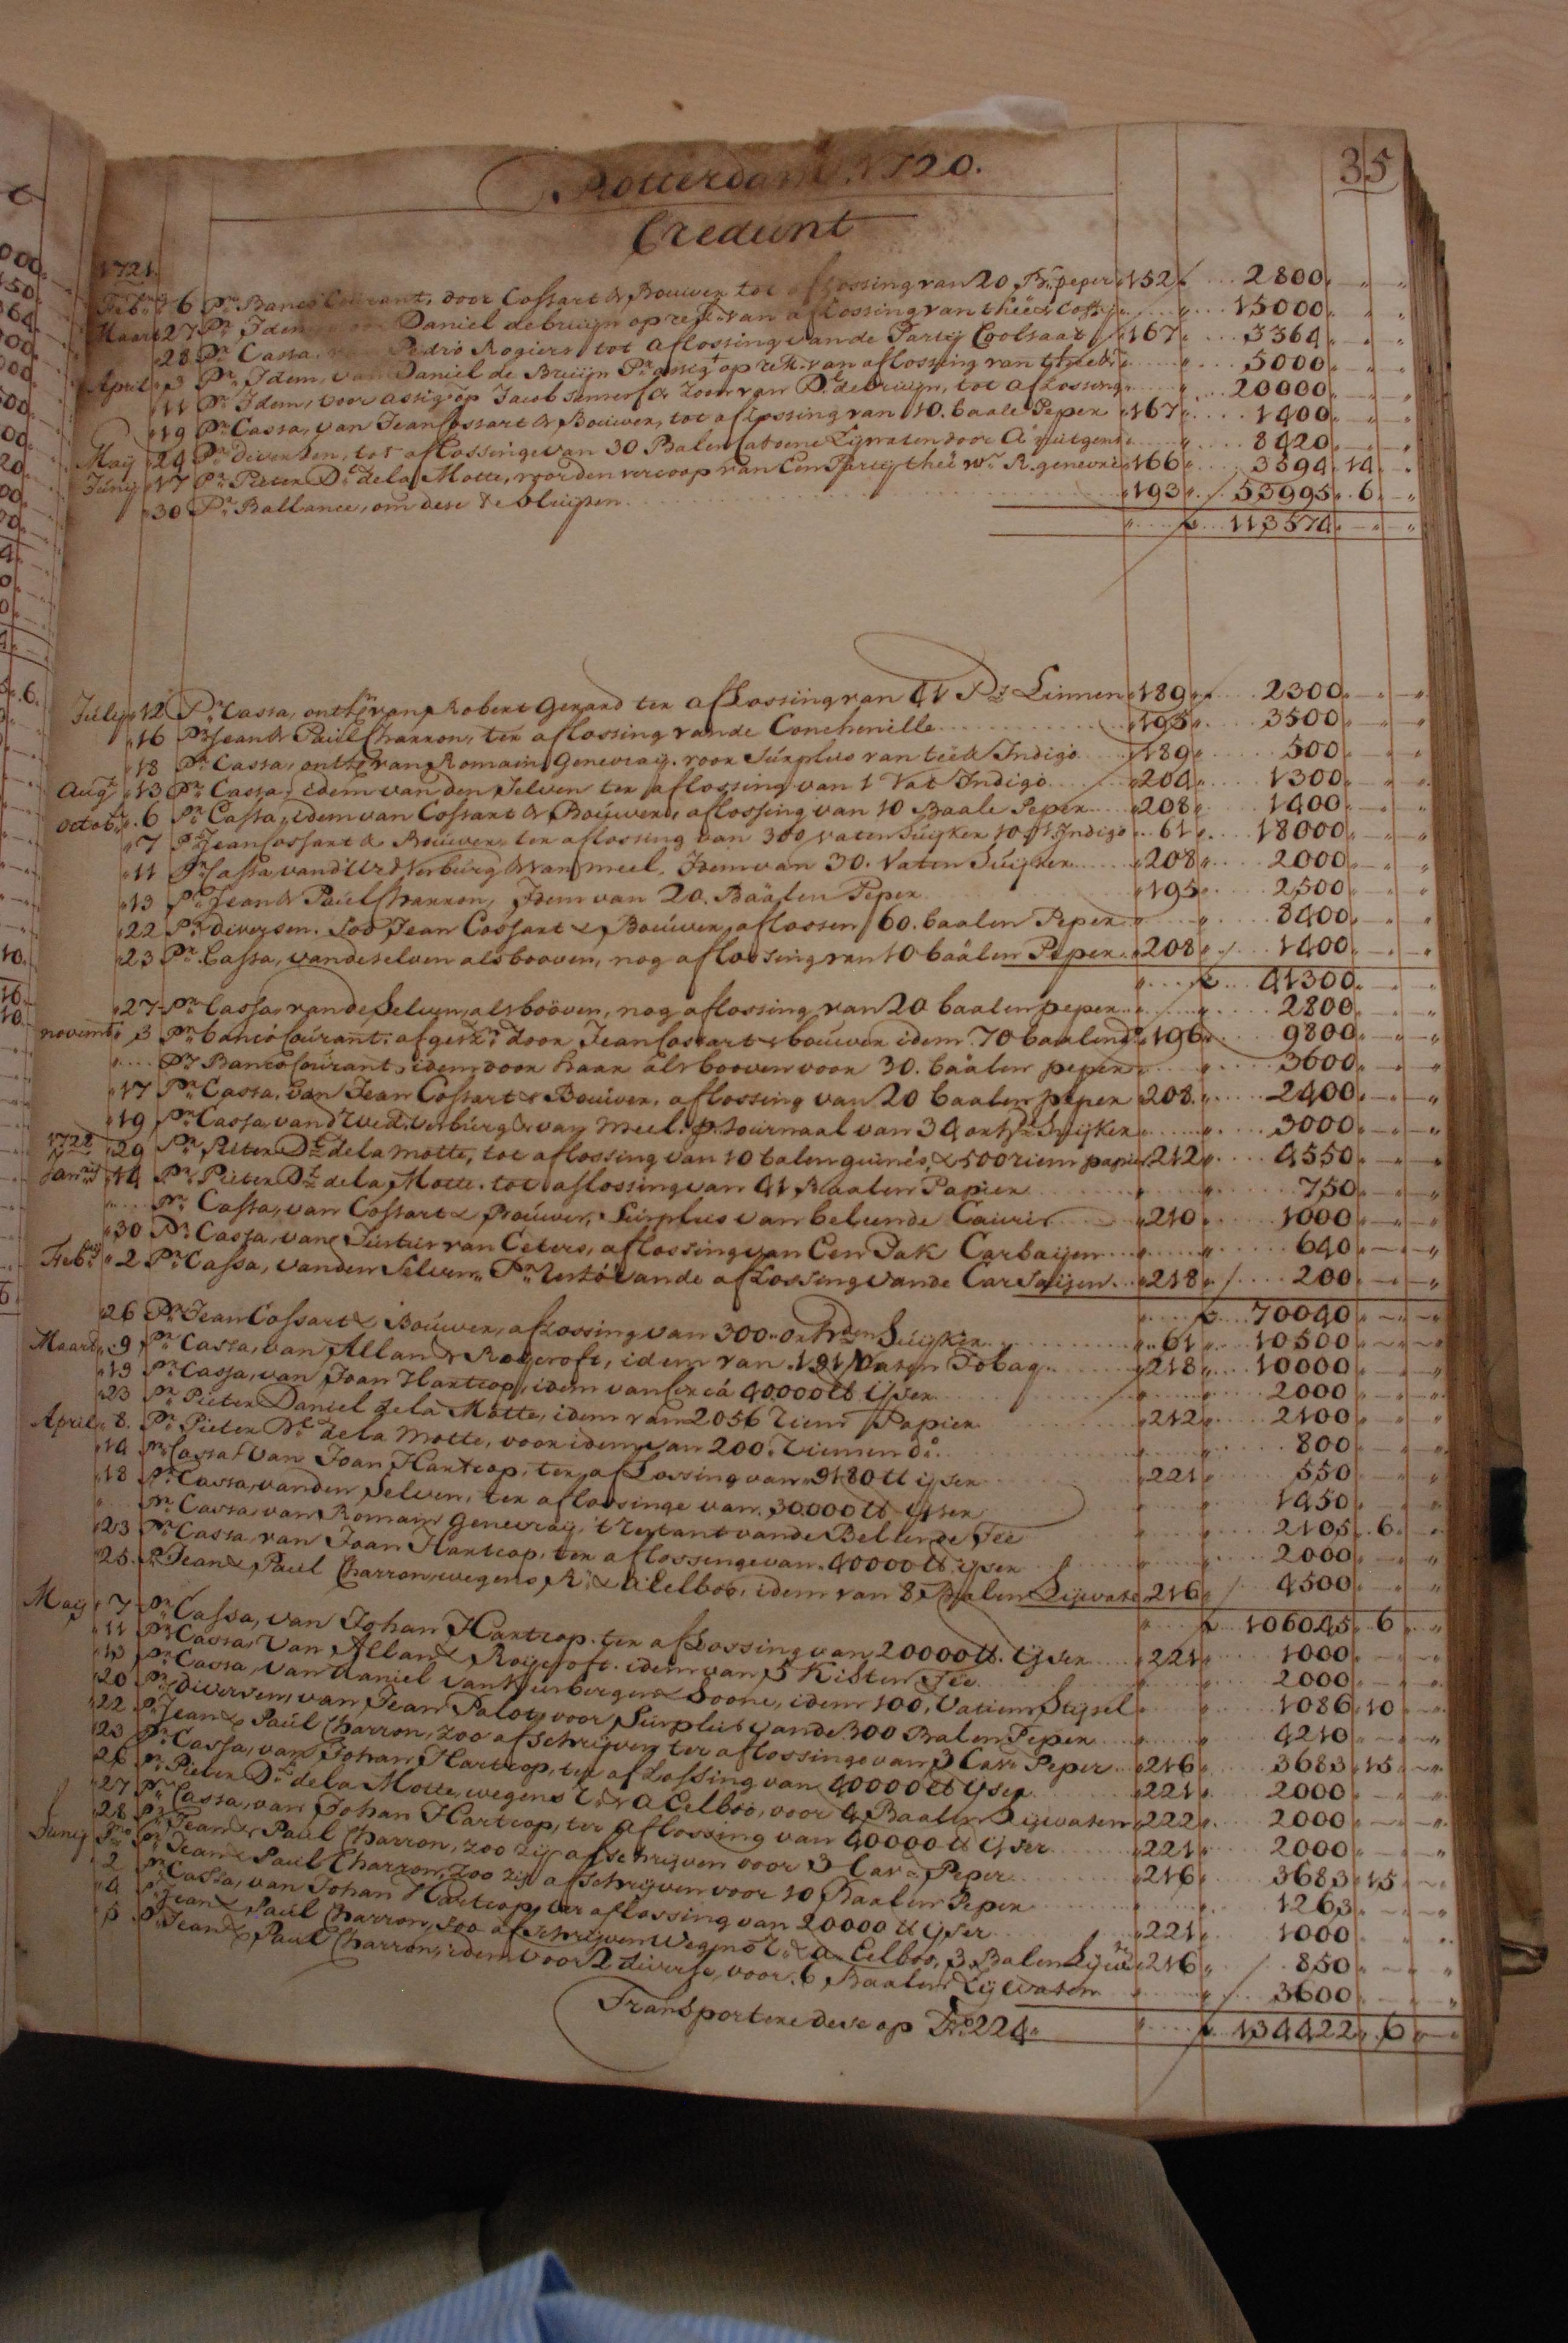 35
Rotterdam. 1720.
Credunt
1721
Feb: 6 Pr. Banco Courant, door Cossart & Bouwer tot aflossing van 20 Bn. peper 152 f 2800
Maart 27 Pr. Idem Daniel de bruijn op rest. van aflossing van theë & Coffij 15000
28 Pr. Cassa, Pedro Rogiers tot aflossing vande Partij Coolsaat 167 3364
April 3 Pr. Idem, van Daniel de Bruijn Pr. assig. op rek. van aflossing van 5000
11 Pr. Idem, voor assig. op Jacob & Zoon van D. de bruijn, tot aflossing 20000
19 Pr. Cassa, van Jean Cossart & Bouwer, tot aflossing van 10. baale Peper 167 1400
Maij 24 Pr. diversen, tot aflossinge van 30 Balen Catoene Lijwaten door A. 8420
Junij 17 Pr. Pieter Dl. de la Motte, voor den vercoop van Een Partij theë wn. R. genevraij 166 3394 14
30 Pr. Ballance, om dese te sluijten 193 53995 6
f 113574
Julij 12 Pr. Cassa, onth. van Robert Gerard ter aflossing van 41 Ps. Linnen 189 f 2300
16 Pr. Jean & Paul Charron, ter aflossing vande Conchenille 195 3500
18 Pr. Cassa, onth. van Romain Genevraij. voor Surplus van Indigo 189 500
Aug. 13 Pr. Cassa, idem van den selven ter aflossing van 1 Vat Indigo 204 1300
Octob. 6 Pr. Cassa, idem van Cossart & Bouwer, aflossing van 10 Baale Peper 208 1400
7 Pr. Jean Cossart & Bouwer, ter aflossing van 300 vaten Suijker 10 Indigo 61 18000
11 Pr. Cassa, van d'Wed. Verburg & van meel, Idem van 30. Vaten Suijker 208 2000
13 Pr. Jean & Paul Charron, Idem van 20. Baalen Peper 195 2500
22 Pr. diversen. Soo Jean Cossart & Bouwer, aflossen 60. baalen Peper 8400
23 Pr. Cassa, vandeselven als booven, nog aflossing van 10 baalen Peper 208 1400
f 41300
27 Pr. Cassa, vande selven als booven, nog aflossing van 20 baalen peper 2800
novemb. 3 Pr. banco Courant. door Jean Cossart & bouwer idem 70 baalen do. 196 9800
Pr. Banco Courant, idem door haar als booven voor 30. baalen peper 3600
17 Pr. Cassa, van Jean Cossart & Bouwer, aflossing van 20 baalen peper 208 2400
19 Pr. Cassa van d'Wed. Verburg & van Meel. p. Journaal van 34 oxh. Suijker 3000
29 Pr. Pieter Dl. de la Motte, tot aflossing van 10 balen guinés, & 500 riem papier 212 4550
1722
Jan. 14 Pr. Pieter Dl. de la Motte. tot aflossing van 41 Baalen Papier 750
Pr. Cassa, van Cossart & Bouwer, Surplus van beleende Cauris 210 1000
30 Pr. Cassa, van Justus van Ceters, aflossing van Een Pak Carsaijen 640
Feb. 2 Pr. Cassa, vanden Selven Pr. Resto vande aflossing vande Carsaijen 218 200
f 70040
26 Pr. Jean Cossart & Bouwer, aflossing van 300 oxhden Suijker 61 10500
Maart 9 Pr. Cassa, van Allan & Roijcroft, idem van 191 Vaten Tobaq 218 10000
19 Pr. Cassa, van Joan Hartcop, idem van circa 40000 lb ijser 2000
23 Pr. Pieter Daniel de la Motte, idem van 2056 riem Papier 212 2100
April 8. Pr. Pieter Dl. de la Motte, voor idem van 200. Riemen do. 800
14 Pr. Cassa van Joan Hartcop, ter aflossing van 9180 lb ijser 221 550
18 Pr. Cassa, vanden Selven, ter aflossinge van 30.000 lb ijser 1450
Pr. Cassa, van Romain Genevraij, 't Restant vande Beleende Tee 2105 6
23 Pr. Cassa, van Joan Hartcop, ter aflossinge van 40000 lb ijser 2000
25 Pr. Jean & Paul Charron, wegens R. & A. Eelboo, idem van 8 Balen Lijwate 216 4500
f 106045 6
Maij 7 Pr. Cassa, van Johan Hartcop. ter aflossing van 20000 lb. ijser 221 1000
11 Pr. Cassa, Van Allan & Roijcroft. idem van 5 Kisten Tee 2000
13 Pr. Cassa, van Daniel & Soone, idem 100, Vaten Stijsel 1086 10
20 Pr. diversen, van Jean Palot, voor Surplus vande 300 Balen Peper 4210
22 Pr. Jean & Paul Charron, zoo afschrijven ter aflossinge van 3 Cav. Peper 216 3683 15
23 Pr. Cassa, van Johan Hartcop, ter aflossing van 40000 lb ijser 221 2000
26 Pr. Pieter Dl. de la Motte, wegens R. & A Eelboo, voor 4 Baalen Lijwaten 222 2000
27 Pr. Cassa, van Johan Hartcop, ter aflossing van 40000 lb ijser 221 2000
28 Pr. Jean & Paul Charron, zoo zij afschrijven voor 3 Cav. Peper 216 3683 15
Junij Pmo. Pr. Jean & Paul Charron, zoo zij afschrijven voor 10 Baalen Peper 1263
2 Pr. Cassa, van Johan Hartcop, ter aflossing van 20000 lb ijser 221 1000
4 Pr. Jean & Paul Charron, zoo afschrijven wegens R. & A. Eelboo, 3 Balen Lijwn. 216 850
5 Pr. Jean & Paul Charron, idem voor 2 diverse, voor. 6 Baalen Lijwaten 3600
Transportere dese op Fo. 224 f 134422 6